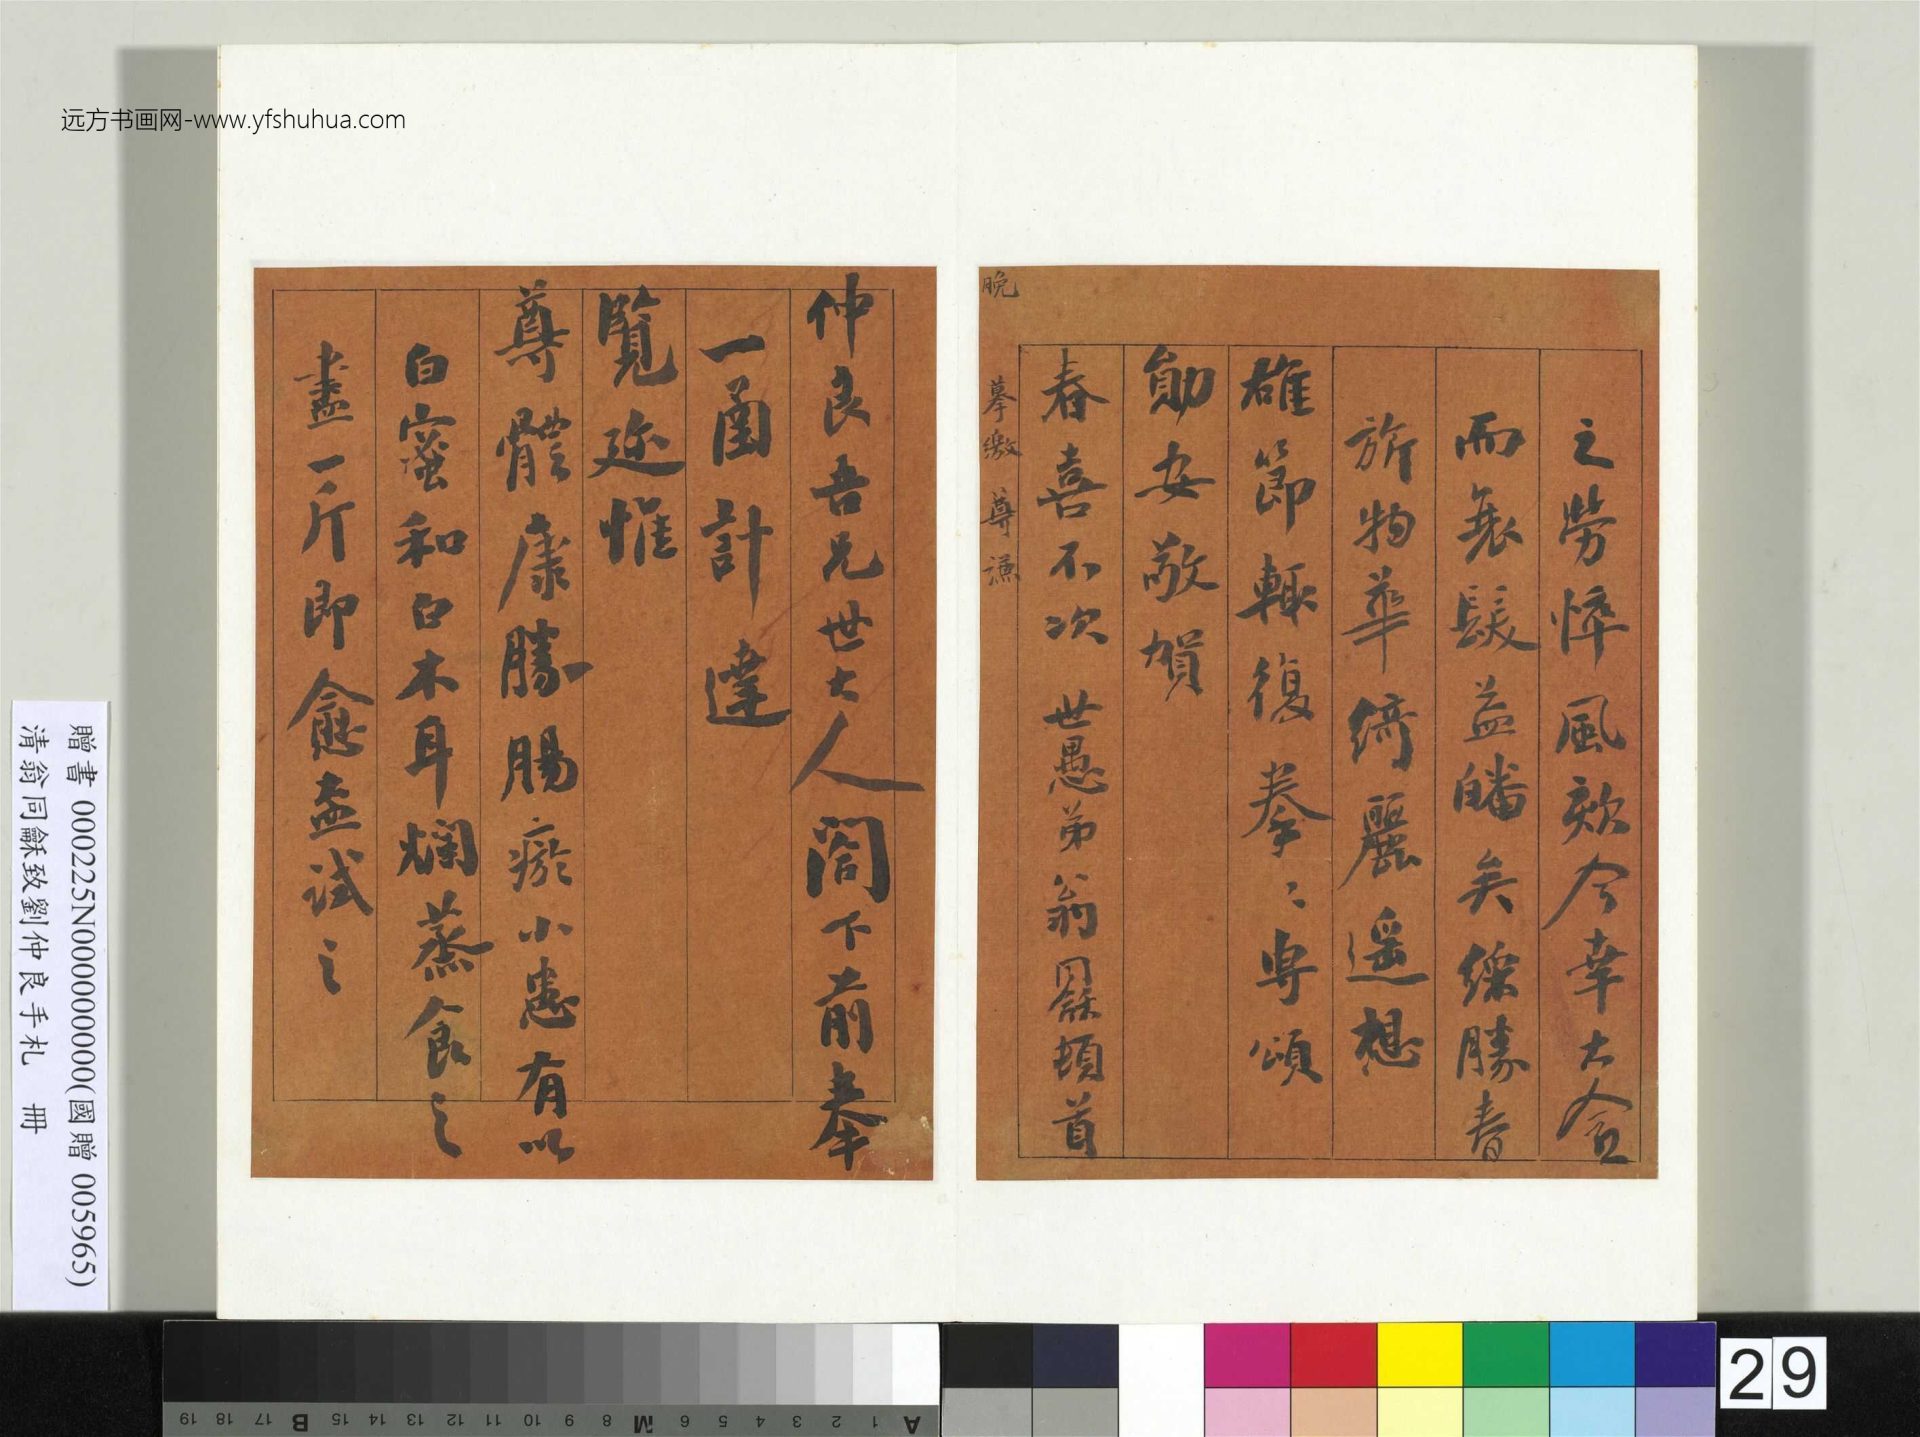 远方书画网-www.yfshuhua.com
之勞悴風欬今幸大愈
而衰鬢益皤矣綵勝春
旂物華綺麗遥想
雄節輒復拳〻專頌
勛安敬賀
春喜不次 世愚弟翁同龢頓首
晚
摹繳 尊謙
仲良吾兄世大人閣下前奉
一函計達
覽迩惟
尊體康勝腸瘀小恙有以
白蜜和白木耳爛蒸食之
盡一斤即愈盍试之
贈書 000225N000000000(國贈 005965)
清翁同龢致劉仲良手札 冊
19 18 17 B 16 15 14 13 12 11 10 9 8 M 7 6 5 4 3 2 1 A
29